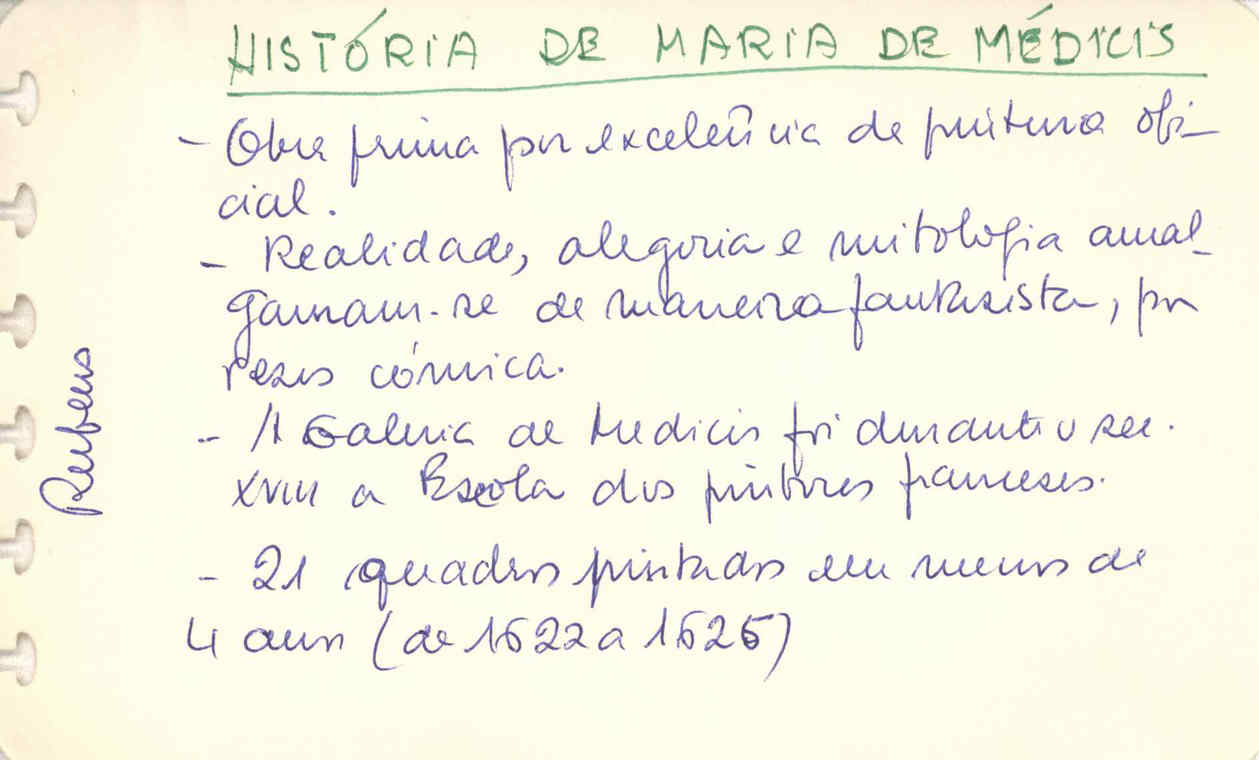 HISTÓRIA DE MARIA DE MÉDICIS
- Obra prima por excelência da pintura ofi-
cial.
- Realidade, alegoria e mitologia amal-
gamam-se de maneira fantasista, por
vezes cómica.
- A Galeria de Medicis foi durante o sec.
XVIII a Escola dos pintores franceses.
- 21 quadros pintados em menos de
4 anos (de 1622 a 1625)
Rubens